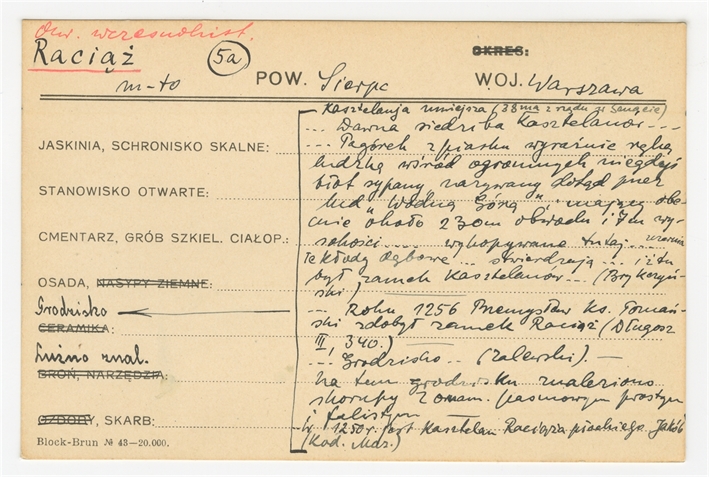 Okr. wczesnohist.
Raciąż
m-to
5a
OKRES:
POW. Sierpc
WOJ. Warszawa
Kasztelanja mniejsza (38ma z rzędu w Senacie)
... Dawna siedziba Kasztelanów ...
JASKINIA, SCHRONISKO SKALNE:
... Pagórek z piasku wyraźnie ręką
ludzką wśród ogromnych niegdyś
STANOWISKO OTWARTE:
błot sypany nazywany dotąd przez
lud "Wodną Górą", mający obe-
cnie około 230m obwodu i 7m wy-
CMENTARZ, GRÓB SZKIEL. CIAŁOP.:
sokości .... wykopywane tutaj
kłody dębowe ... stwierdzają ... iż tu
OSADA, NASYPY ZIEMNE:
był zamek Kasztelanów ...
Grodzisko
... Roku 1256 Przemysław Ks.
CERAMIKA:
ski zdobył zamek Raciąż (Długosz
II, 340.)
Luźno znal.
... Grodzisko .. (Zalewski). —
BROŃ, NARZĘDZIA:
Na tem grodzisku znaleziono
skorupy z ornam. pasmowym prostym
OZDOBY, SKARB:
i falistym —
W 1250 r. jest Kasztelan Raciąża Jakób
Block-Brun № 43—20.000.
(Kod. Maz.)